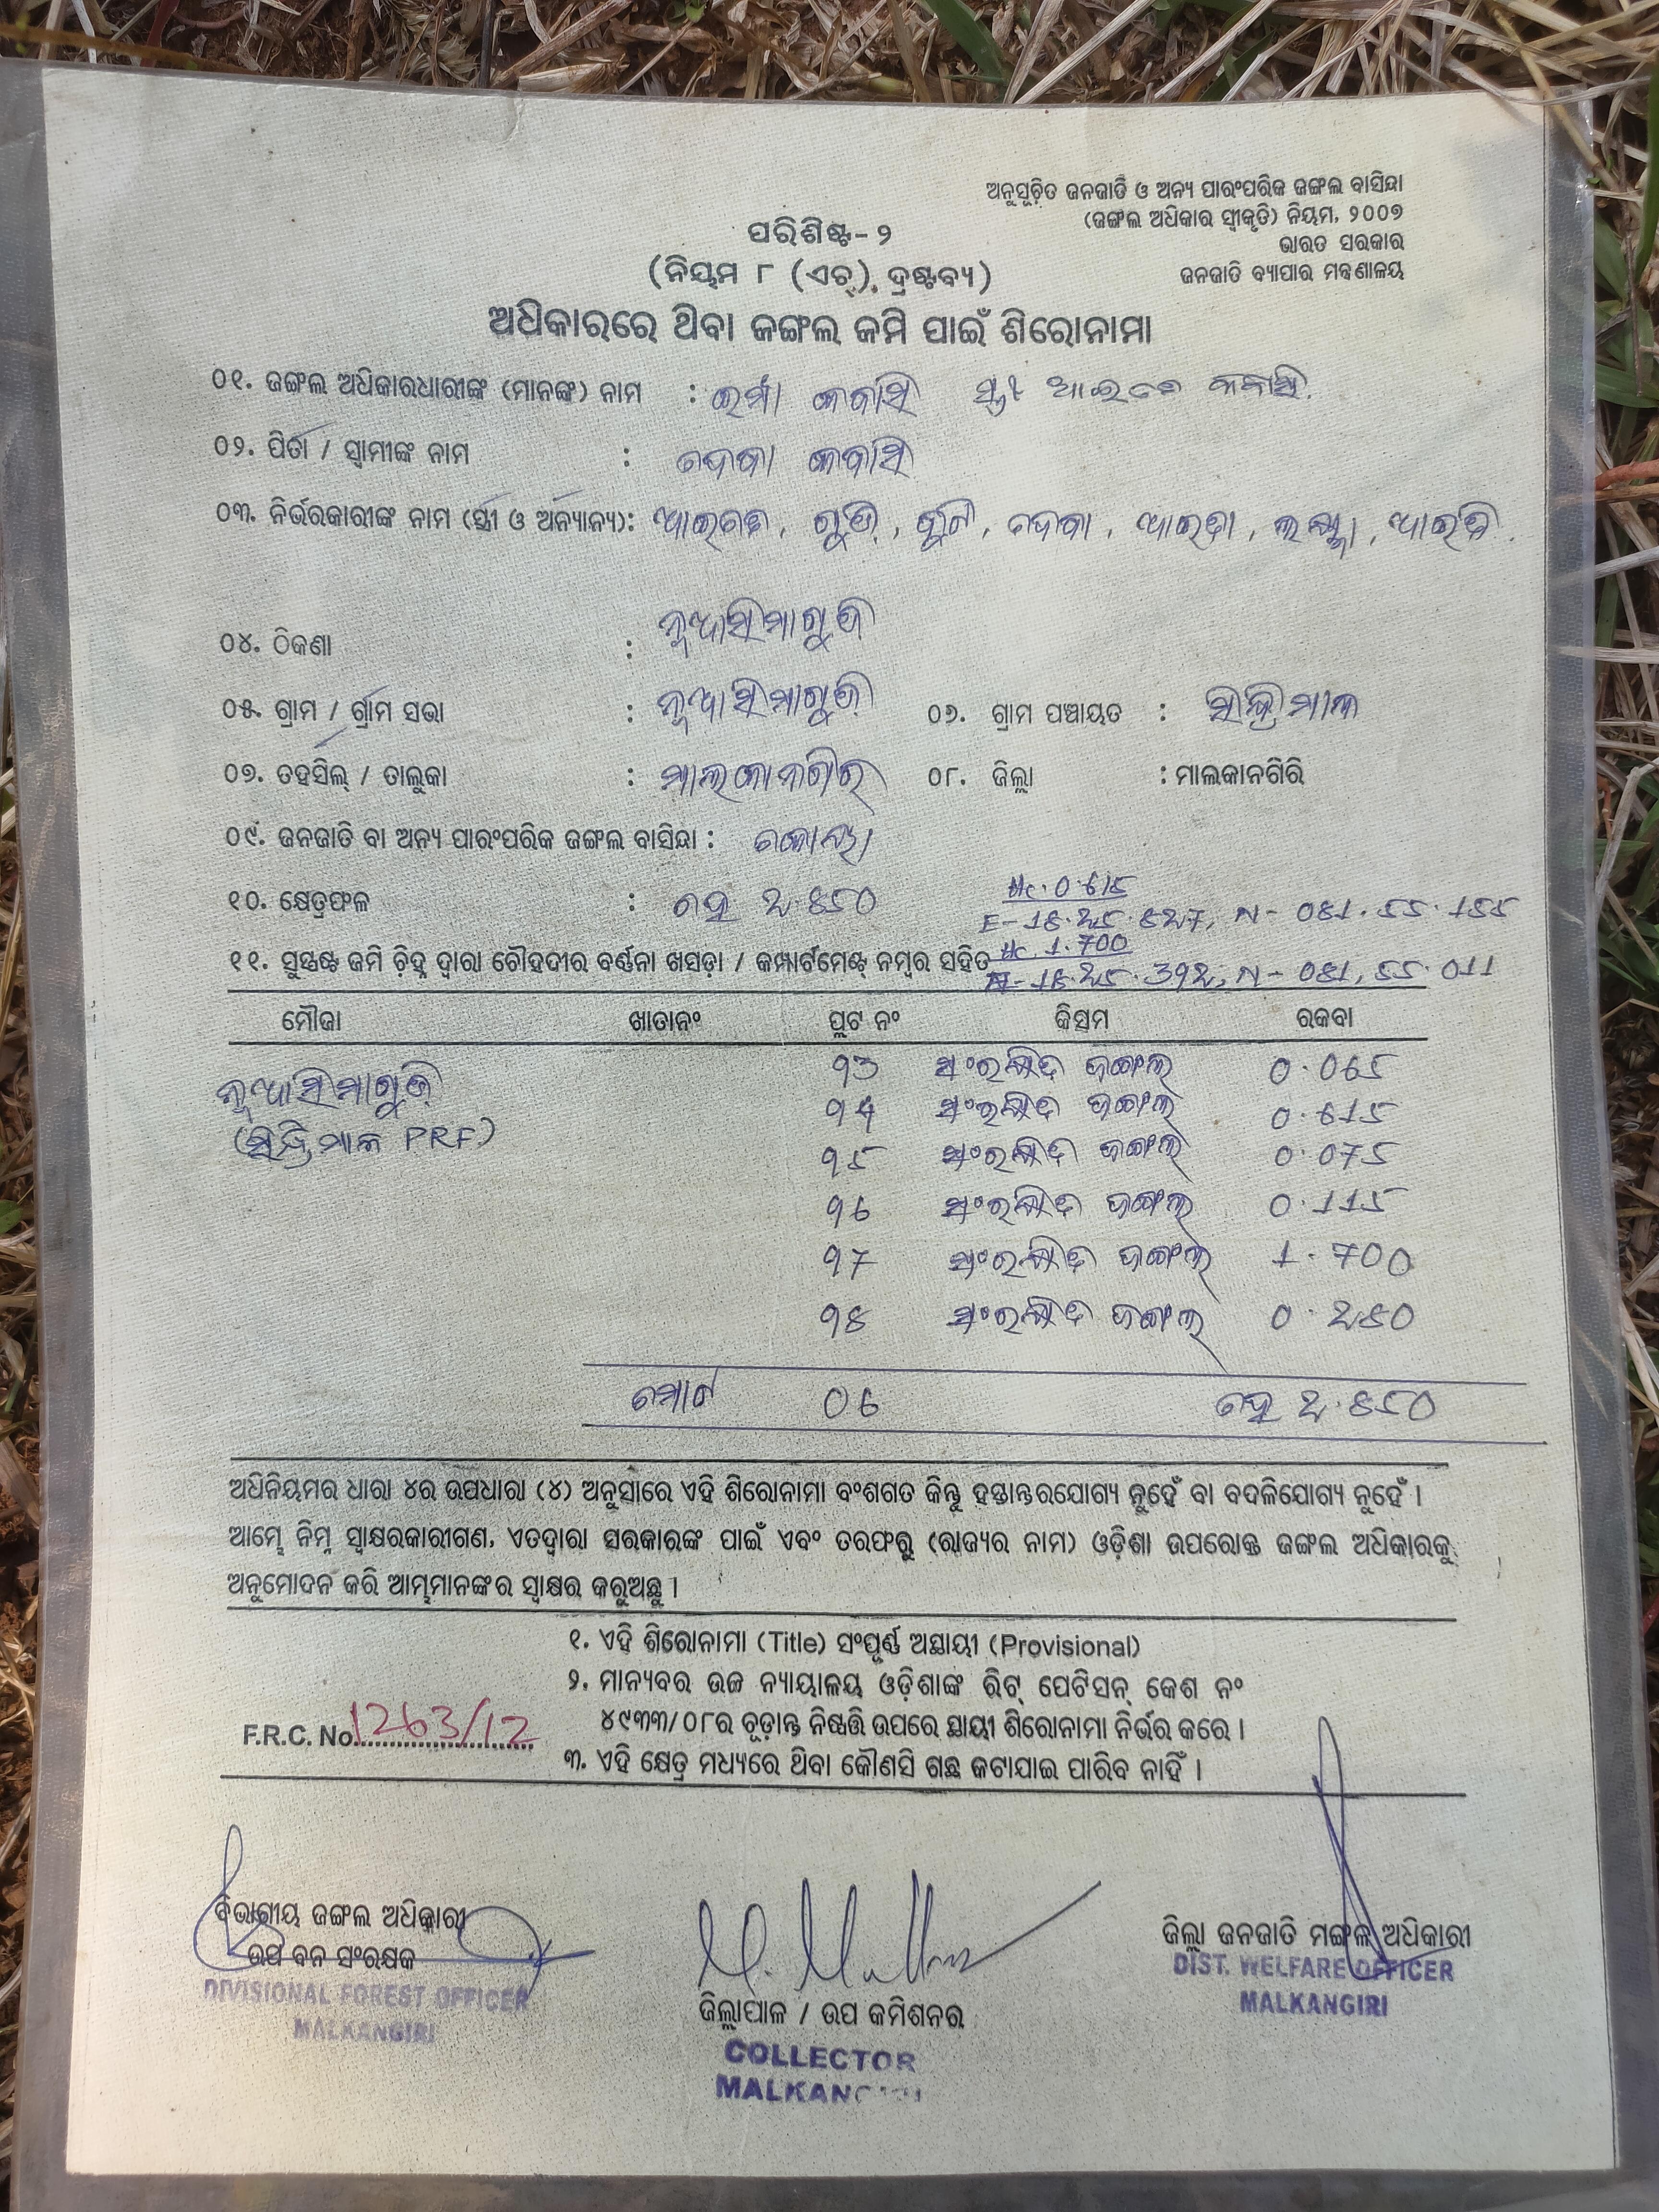 ଅନୁସୂଚିତ ଜନଜାତି ଓ ଅନ୍ୟ ପାରଂପରିକ ଜଙ୍ଗଲ ବାସିନ୍ଦା
(ଜଙ୍ଗଲ ଅଧିକାର ସ୍ୱୀକୃତି) ନିୟମ, ୨୦୦୭
ଭାରତ ସରକାର
ଜନଜାତି ବ୍ୟାପାର ମନ୍ତ୍ରଣାଳୟ
ପରିଶିଷ୍ଟ-୨
(ନିୟମ ୮ (ଏଚ୍), ଦ୍ରଷ୍ଟବ୍ୟ)
ଅଧିକାରରେ ଥିବା ଜଙ୍ଗଲ ଜମି ପାଇଁ ଶିରୋନାମା
୦୧. ଜଙ୍ଗଲ ଅଧିକାରଧାରୀଙ୍କ (ମାନଙ୍କ) ନାମ : ଇର୍ମା କବାସି
୦୨. ପିତା / ସ୍ୱାମୀଙ୍କ ନାମ : ଦେବା କବାସି
୦୩. ନିର୍ଭରକାରୀଙ୍କ ନାମ (ସ୍ତ୍ରୀ ଓ ଅନ୍ୟାନ୍ୟ): ଦେବା,
୦୪. ଠିକଣା : ନୂଆସିମାଗୁଡ଼ି
୦୫. ଗ୍ରାମ / ଗ୍ରାମ ସଭା : ନୂଆସିମାଗୁଡ଼ି ୦୬. ଗ୍ରାମ ପଞ୍ଚାୟତ : ସିନ୍ଦ୍ରିମାଳ
୦୭. ତହସିଲ୍ / ତାଲୁକା : ମାଲକାନଗିରି ୦୮. ଜିଲ୍ଲା : ମାଲକାନଗିରି
୦୯. ଜନଜାତି ବା ଅନ୍ୟ ପାରଂପରିକ ଜଙ୍ଗଲ ବାସିନ୍ଦା : କୋୟା
୧୦. କ୍ଷେତ୍ରଫଳ : ହେ 2.850 Hc. 0.615
Hc. 1.700
୧୧. ସୁସ୍ପଷ୍ଟ ଜମି ଚିହ୍ନ ଦ୍ୱାରା ଚୌହଦୀର ବର୍ଣ୍ଣନା ଖସଡ଼ା / କମ୍ପାର୍ଟମେଣ୍ଟ୍ ନମ୍ବର ସହିତ
ମୌଜା ଖାତାନଂ ପ୍ଲଟ ନଂ କିସମ ରକବା
ନୂଆସିମାଗୁଡ଼ି 93 ସଂରକ୍ଷିତ ଜଙ୍ଗଲ 0.065
(ସିନ୍ଦ୍ରିମାଳ PRF) 94 ସଂରକ୍ଷିତ ଜଙ୍ଗଲ 0.615
95 ସଂରକ୍ଷିତ ଜଙ୍ଗଲ 0.075
96 ସଂରକ୍ଷିତ ଜଙ୍ଗଲ 0.115
97 ସଂରକ୍ଷିତ ଜଙ୍ଗଲ 1.700
98 ସଂରକ୍ଷିତ ଜଙ୍ଗଲ 0.280
ମୋଟ 06 ହେ 2.850
ଅଧିନିୟମର ଧାରା ୪ର ଉପଧାରା (୪) ଅନୁସାରେ ଏହି ଶିରୋନାମା ବଂଶଗତ କିନ୍ତୁ ହସ୍ତାନ୍ତରଯୋଗ୍ୟ ନୁହେଁ ବା ବଦଳିଯୋଗ୍ୟ ନୁହେଁ ।
ଆମ୍ଭେ ନିମ୍ନ ସ୍ୱାକ୍ଷରକାରୀଗଣ, ଏତଦ୍ୱାରା ସରକାରଙ୍କ ପାଇଁ ଏବଂ ତରଫରୁ (ରାଜ୍ୟର ନାମ) ଓଡ଼ିଶା ଉପରୋକ୍ତ ଜଙ୍ଗଲ ଅଧିକାରକୁ
ଅନୁମୋଦନ କରି ଆମ୍ଭମାନଙ୍କର ସ୍ୱାକ୍ଷର କରୁଅଛୁ ।
୧. ଏହି ଶିରୋନାମା (Title) ସଂପୂର୍ଣ୍ଣ ଅସ୍ଥାୟୀ (Provisional)
୨. ମାନ୍ୟବର ଉଚ୍ଚ ନ୍ୟାୟାଳୟ ଓଡ଼ିଶାଙ୍କ ରିଟ୍ ପେଟିସନ୍ କେଶ ନଂ
୪୯୩୩/୦୮ର ଚୂଡ଼ାନ୍ତ ନିଷ୍ପତ୍ତି ଉପରେ ସ୍ଥାୟୀ ଶିରୋନାମା ନିର୍ଭର କରେ ।
F.R.C. No. 1263/12
୩. ଏହି କ୍ଷେତ୍ର ମଧ୍ୟରେ ଥିବା କୌଣସି ଗଛ କଟାଯାଇ ପାରିବ ନାହିଁ ।
ବିଭାଗୀୟ ଜଙ୍ଗଲ ଅଧିକାରୀ
ଉପ ବନ ସଂରକ୍ଷକ
DIVISIONAL FOREST OFFICER
MALKANGIRI
ଜିଲ୍ଲାପାଳ / ଉପ କମିଶନର
COLLECTOR
MALKANGIRI
ଜିଲ୍ଲା ଜନଜାତି ମଙ୍ଗଳ ଅଧିକାରୀ
DIST. WELFARE OFFICER
MALKANGIRI